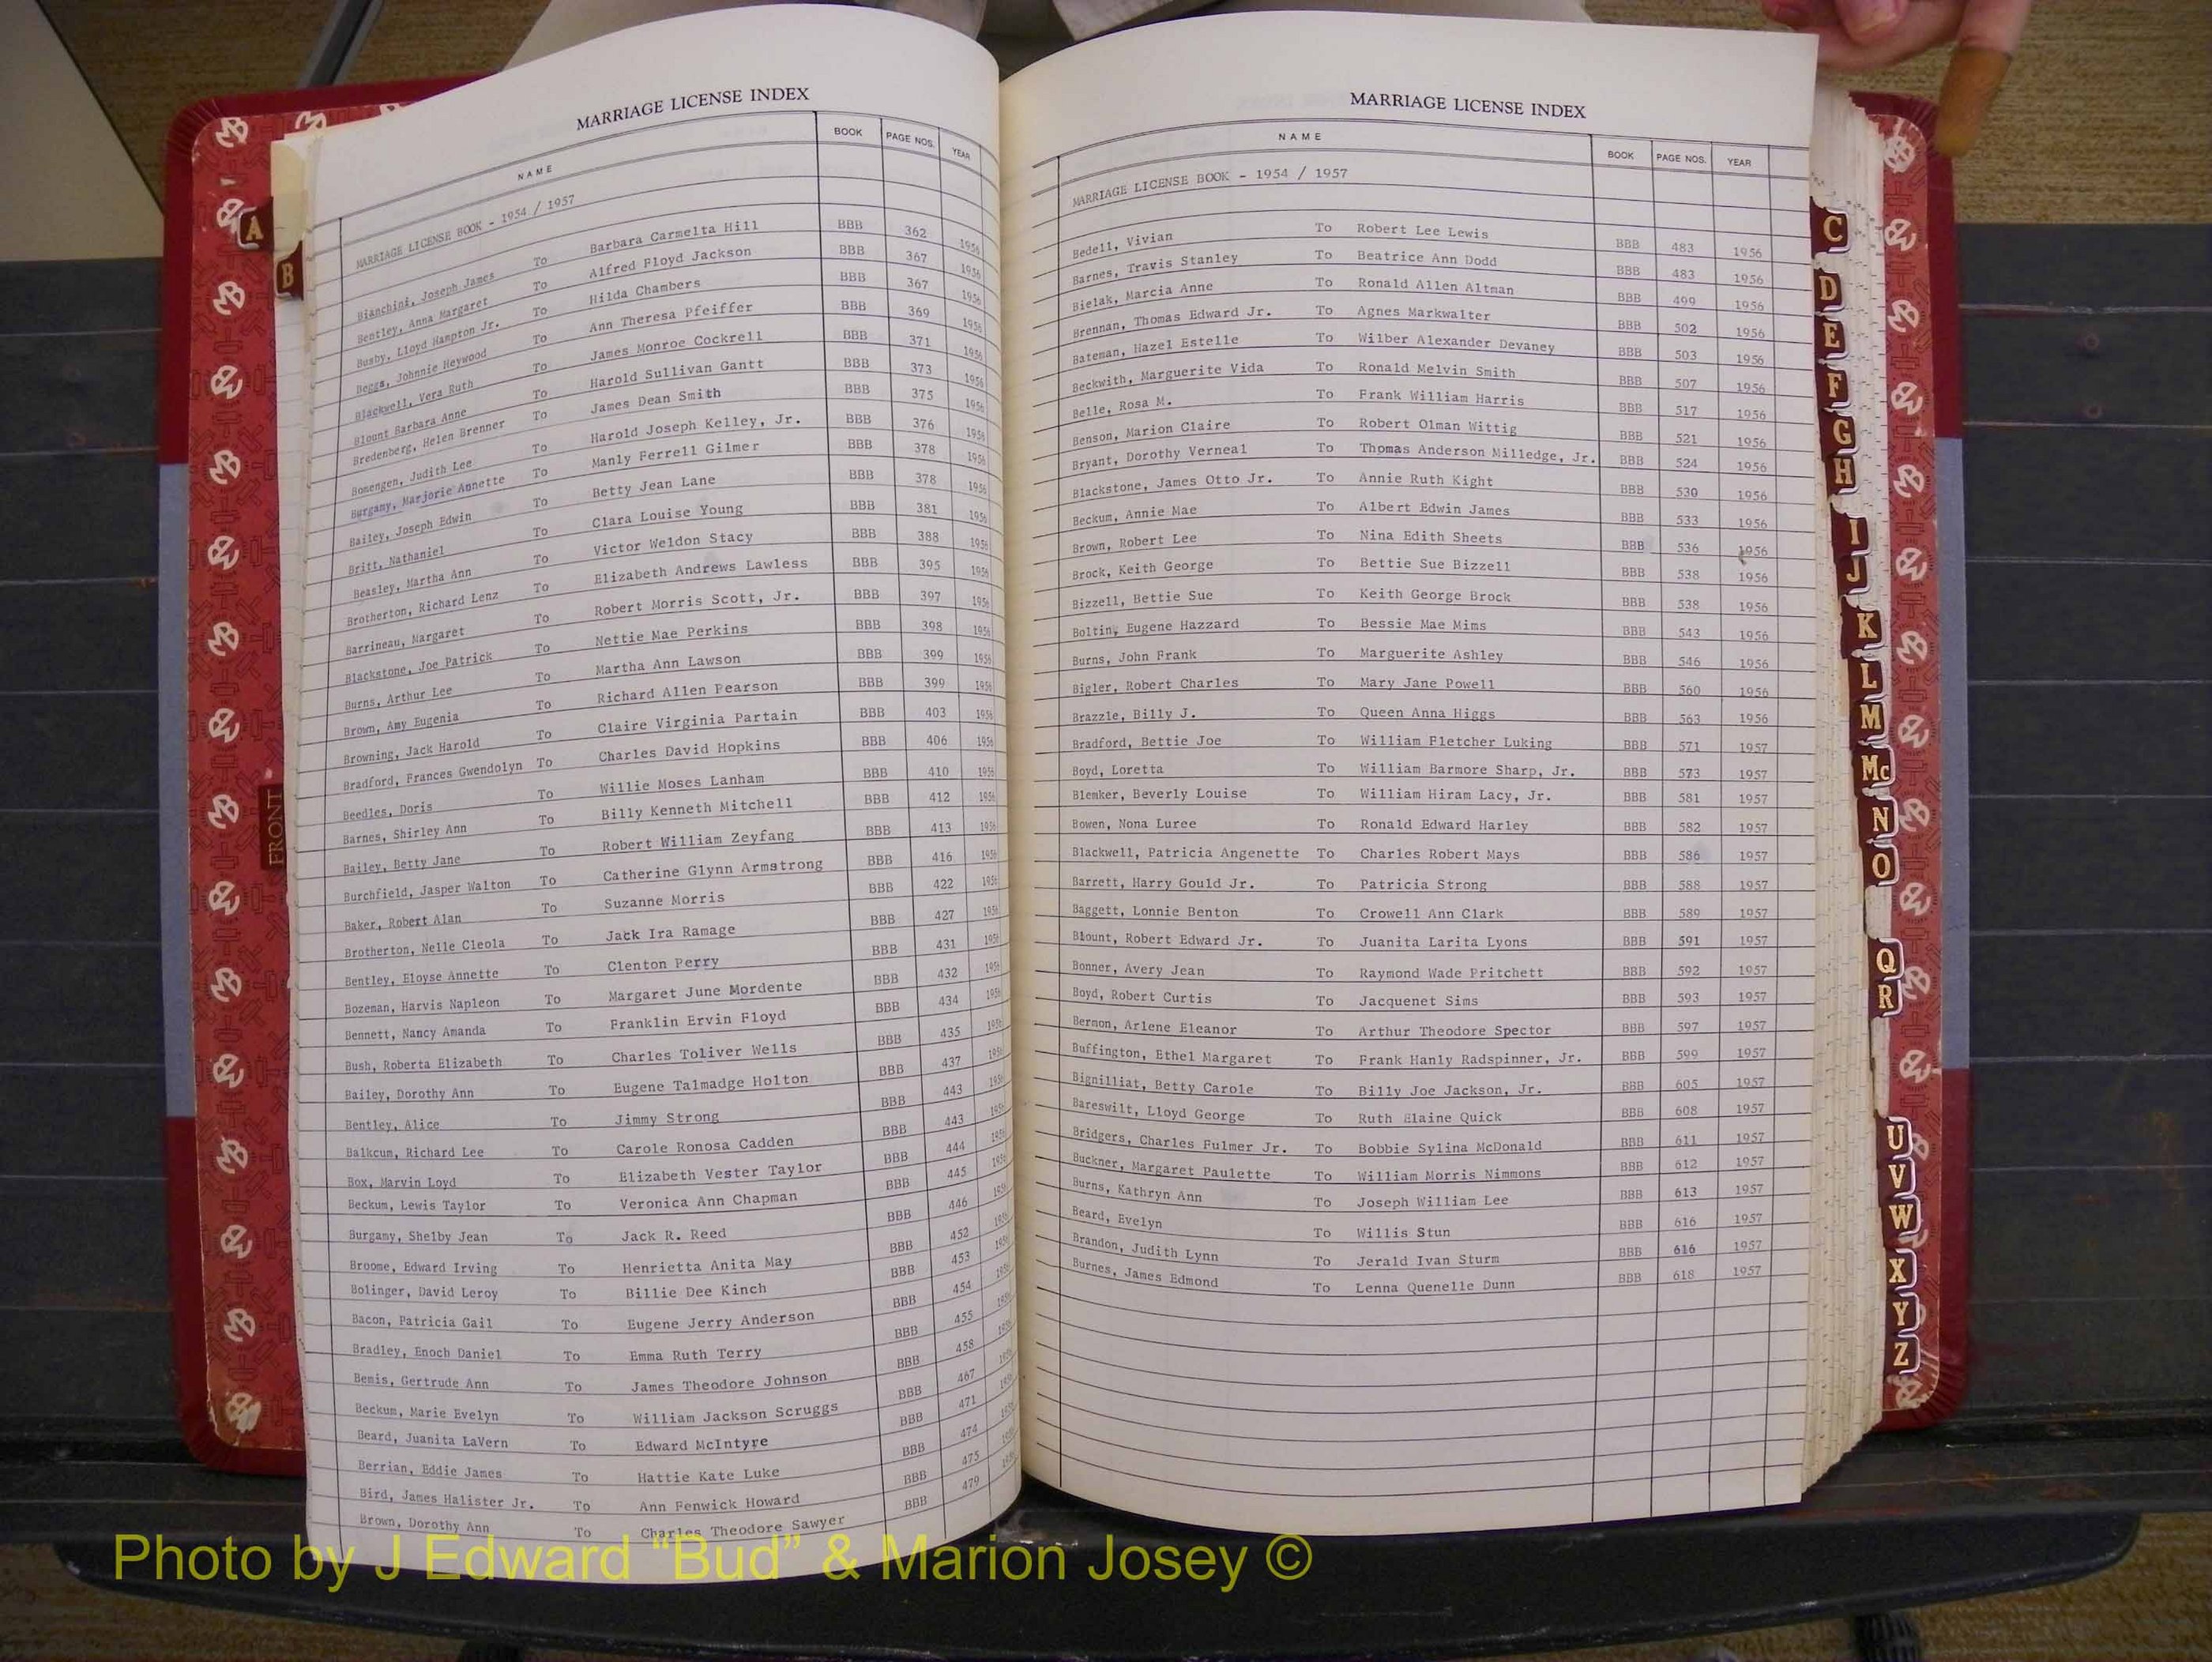 MARRIAGE LICENSE INDEX
NAME BOOK PAGE NOS. YEAR
MARRIAGE LICENSE BOOK - 1954 / 1957
Bianchini, Joseph James To Barbara Carmelta Hill BBB 362 1956
Bentley, Anna Margaret To Alfred Floyd Jackson BBB 367 1956
Busby, Lloyd Hampton Jr. To Hilda Chambers BBB 367 1956
Beggs, Johnnie Heywood To Ann Theresa Pfeiffer BBB 369 1956
Blackwell, Vera Ruth To James Monroe Cockrell BBB 371 1956
Blount Barbara Anne To Harold Sullivan Gantt BBB 373 1956
Bredenberg, Helen Brenner To James Dean Smith BBB 375 1956
Bonengen, Judith Lee To Harold Joseph Kelley, Jr. BBB 376 1956
Burgamy, Marjorie Annette To Manly Ferrell Gilmer BBB 378 1956
Bailey, Joseph Edwin To Betty Jean Lane BBB 378 1956
Britt, Nathaniel To Clara Louise Young BBB 381 1956
Beasley, Martha Ann To Victor Weldon Stacy BBB 388 1956
Brotherton, Richard Lenz To Elizabeth Andrews Lawless BBB 395 1956
Barrineau, Margaret To Robert Morris Scott, Jr. BBB 397 1956
Blackstone, Joe Patrick To Nettie Mae Perkins BBB 398 1956
Burns, Arthur Lee To Martha Ann Lawson BBB 399 1956
Brown, Amy Eugenia To Richard Allen Pearson BBB 399 1956
Browning, Jack Harold To Claire Virginia Partain BBB 403 1956
Bradford, Frances Gwendolyn To Charles David Hopkins BBB 406 1956
Beedles, Doris To Willie Moses Lanham BBB 410 1956
Barnes, Shirley Ann To Billy Kenneth Mitchell BBB 412 1956
Bailey, Betty Jane To Robert William Zeyfang BBB 413 1956
Burchfield, Jasper Walton To Catherine Glynn Armstrong BBB 416 1956
Baker, Robert Alan To Suzanne Morris BBB 422 1956
Brotherton, Nelle Cleola To Jack Ira Ramage BBB 427 1956
Bentley, Eloyse Annette To Clenton Perry BBB 431 1956
Bozeman, Harvis Napleon To Margaret June Mordente BBB 432 1956
Bennett, Nancy Amanda To Franklin Ervin Floyd BBB 434 1956
Bush, Roberta Elizabeth To Charles Toliver Wells BBB 435 1956
Bailey, Dorothy Ann To Eugene Talmadge Holton BBB 437 1956
Bentley, Alice To Jimmy Strong BBB 443 1956
Balkcum, Richard Lee To Carole Ronosa Cadden BBB 443 1956
Box, Marvin Loyd To Elizabeth Vester Taylor BBB 444 1956
Beckum, Lewis Taylor To Veronica Ann Chapman BBB 445 1956
Burgamy, Shelby Jean To Jack R. Reed BBB 446 1956
Broome, Edward Irving To Henrietta Anita May BBB 452 1956
Bolinger, David Leroy To Billie Dee Kinch BBB 453 1956
Bacon, Patricia Gail To Eugene Jerry Anderson BBB 454 1956
Bradley, Enoch Daniel To Emma Ruth Terry BBB 455 1956
Bemis, Gertrude Ann To James Theodore Johnson BBB 458 1956
Beckum, Marie Evelyn To William Jackson Scruggs BBB 467 1956
Beard, Juanita LaVern To Edward McIntyre BBB 471 1956
Berrian, Eddie James To Hattie Kate Luke BBB 474 1956
Bird, James Halister Jr. To Ann Fenwick Howard BBB 475 1956
Brown, Dorothy Ann To Charles Theodore Sawyer BBB 479
MARRIAGE LICENSE INDEX
NAME BOOK PAGE NOS. YEAR
MARRIAGE LICENSE BOOK - 1954 / 1957
Bedell, Vivian To Robert Lee Lewis BBB 483 1956
Barnes, Travis Stanley To Beatrice Ann Dodd BBB 483 1956
Bielak, Marcia Anne To Ronald Allen Altman BBB 499 1956
Brennan, Thomas Edward Jr. To Agnes Markwalter BBB 502 1956
Bateman, Hazel Estelle To Wilber Alexander Devaney BBB 503 1956
Beckwith, Marguerite Vida To Ronald Melvin Smith BBB 507 1956
Belle, Rosa M. To Frank William Harris BBB 517 1956
Benson, Marion Claire To Robert Olman Wittig BBB 521 1956
Bryant, Dorothy Verneal To Thomas Anderson Milledge, Jr. BBB 524 1956
Blackstone, James Otto Jr. To Annie Ruth Kight BBB 530 1956
Beckum, Annie Mae To Albert Edwin James BBB 533 1956
Brown, Robert Lee To Nina Edith Sheets BBB 536 1956
Brock, Keith George To Bettie Sue Bizzell BBB 538 1956
Bizzell, Bettie Sue To Keith George Brock BBB 538 1956
Boltin, Eugene Hazzard To Bessie Mae Mims BBB 543 1956
Burns, John Frank To Marguerite Ashley BBB 546 1956
Bigler, Robert Charles To Mary Jane Powell BBB 560 1956
Brazzle, Billy J. To Queen Anna Higgs BBB 563 1956
Bradford, Bettie Joe To William Fletcher Luking BBB 571 1957
Boyd, Loretta To William Barmore Sharp, Jr. BBB 573 1957
Blemker, Beverly Louise To William Hiram Lacy, Jr. BBB 581 1957
Bowen, Nona Luree To Ronald Edward Harley BBB 582 1957
Blackwell, Patricia Angenette To Charles Robert Mays BBB 586 1957
Barrett, Harry Gould Jr. To Patricia Strong BBB 588 1957
Baggett, Lonnie Benton To Crowell Ann Clark BBB 589 1957
Blount, Robert Edward Jr. To Juanita Larita Lyons BBB 591 1957
Bonner, Avery Jean To Raymond Wade Pritchett BBB 592 1957
Boyd, Robert Curtis To Jacquenet Sims BBB 593 1957
Bermon, Arlene Eleanor To Arthur Theodore Spector BBB 597 1957
Buffington, Ethel Margaret To Frank Hanly Radspinner, Jr. BBB 599 1957
Bignilliat, Betty Carole To Billy Joe Jackson, Jr. BBB 605 1957
Bareswilt, Lloyd George To Ruth Elaine Quick BBB 608 1957
Bridgers, Charles Fulmer Jr. To Bobbie Sylina McDonald BBB 611 1957
Buckner, Margaret Paulette To William Morris Nimmons BBB 612 1957
Burns, Kathryn Ann To Joseph William Lee BBB 613 1957
Beard, Evelyn To Willis Stun BBB 616 1957
Brandon, Judith Lynn To Jerald Ivan Sturm BBB 616 1957
Burnes, James Edmond To Lenna Quenelle Dunn BBB 618 1957
A
B
FRONT
C
D
E
F
G
H
I
J
K
L
M
Mc
N
O
Q
R
U
V
W
X
Y
Z
Photo by J Edward “Bud” & Marion Josey ©